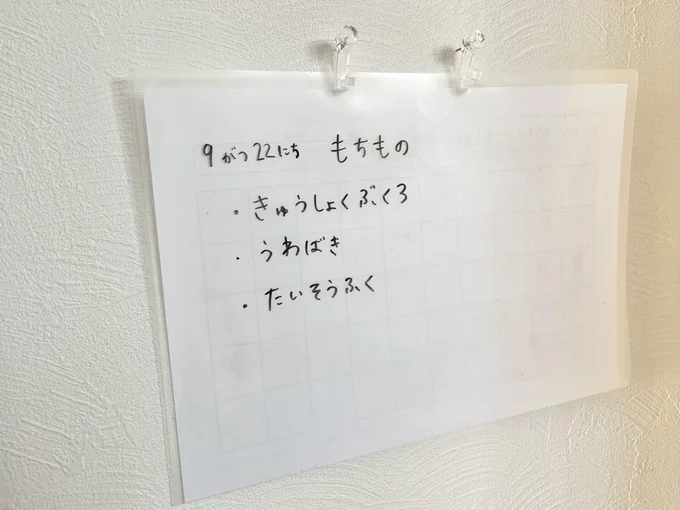 9がつ22にち もちもの
・きゅうしょくぶくろ
・うわばき
・たいそうふく